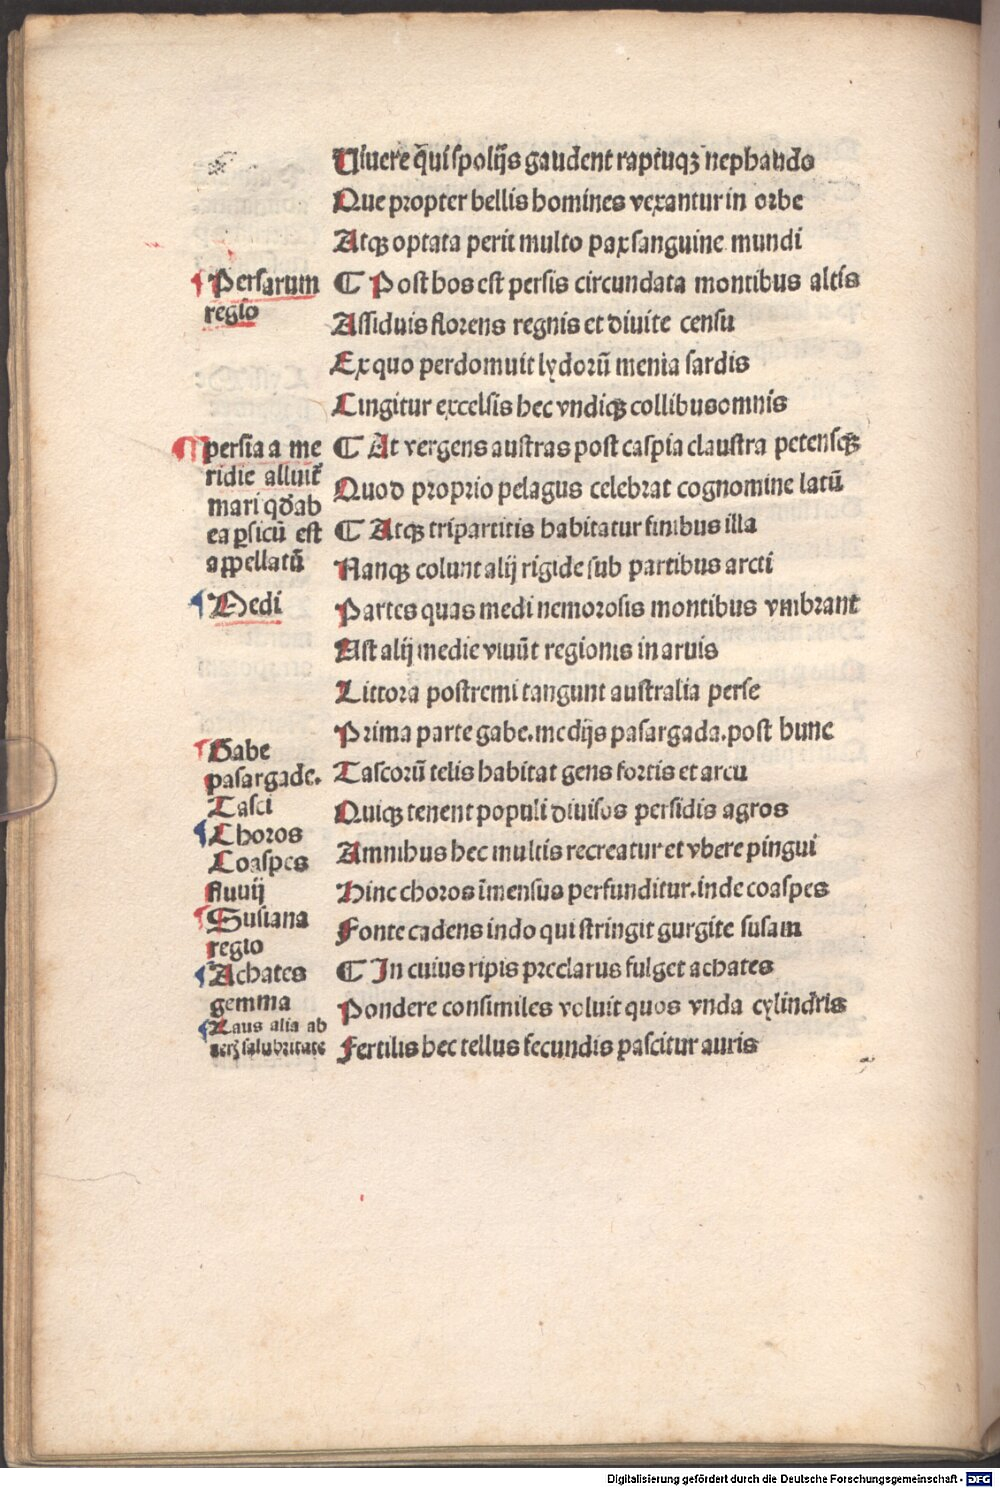 Uiuere q̄ui spolijs gaudent raptuqꝫ nephando
Que propter bellis homines vexantur in orbe
Atqꝫ optata perit multo pax sanguine mundi
¶ Persarum
regio
¶ Post hos est persis circundata montibus altis
Assiduis florens regnis et diuite censu
Ex quo perdomuit lydorū menia sardis
Cingitur excelsis hec vndiqꝫ collibus omnis
¶ persia a me
ridie alluit᷑
mari qd̄ ab
ea ꝑsicū est
appellatū
¶ At vergens austras post caspia claustra petensqꝫ
Quod proprio pelagus celebrat cognomine latū
¶ Atqꝫ tripartitis habitatur finibus illa
Nanqꝫ colunt alij rigide sub partibus arcti
¶ Medi
Partes quas medi nemorosis montibus vmbrant
Ast alij medie viuūt regionis in aruis
Littora postremi tangunt australia perse
Prima parte gabe. medijs pasargada. post hunc
Tascorū telis habitat gens fortis et arcu
Quiqꝫ tenent populi diuisos persidis agros
Amnibus hec multis recreatur et vbere pingui
Hinc choros īmensus perfunditur. inde coaspes
Fonte cadens indo qui stringit gurgite susam
¶ In cuius ripis preclarus fulget achates
Pondere consimiles voluit quos vnda cylindris
Fertilis hec tellus fecundis pascitur auris
¶ Gabe
pasargade.
Tasci
¶ Choros
Coaspes
fluuij
¶ Susiana
regio
¶ Achates
gemma
¶ Laus alia ab
aerꝫ salubritate
Digitalisierung gefördert durch die Deutsche Forschungsgemeinschaft - DFG